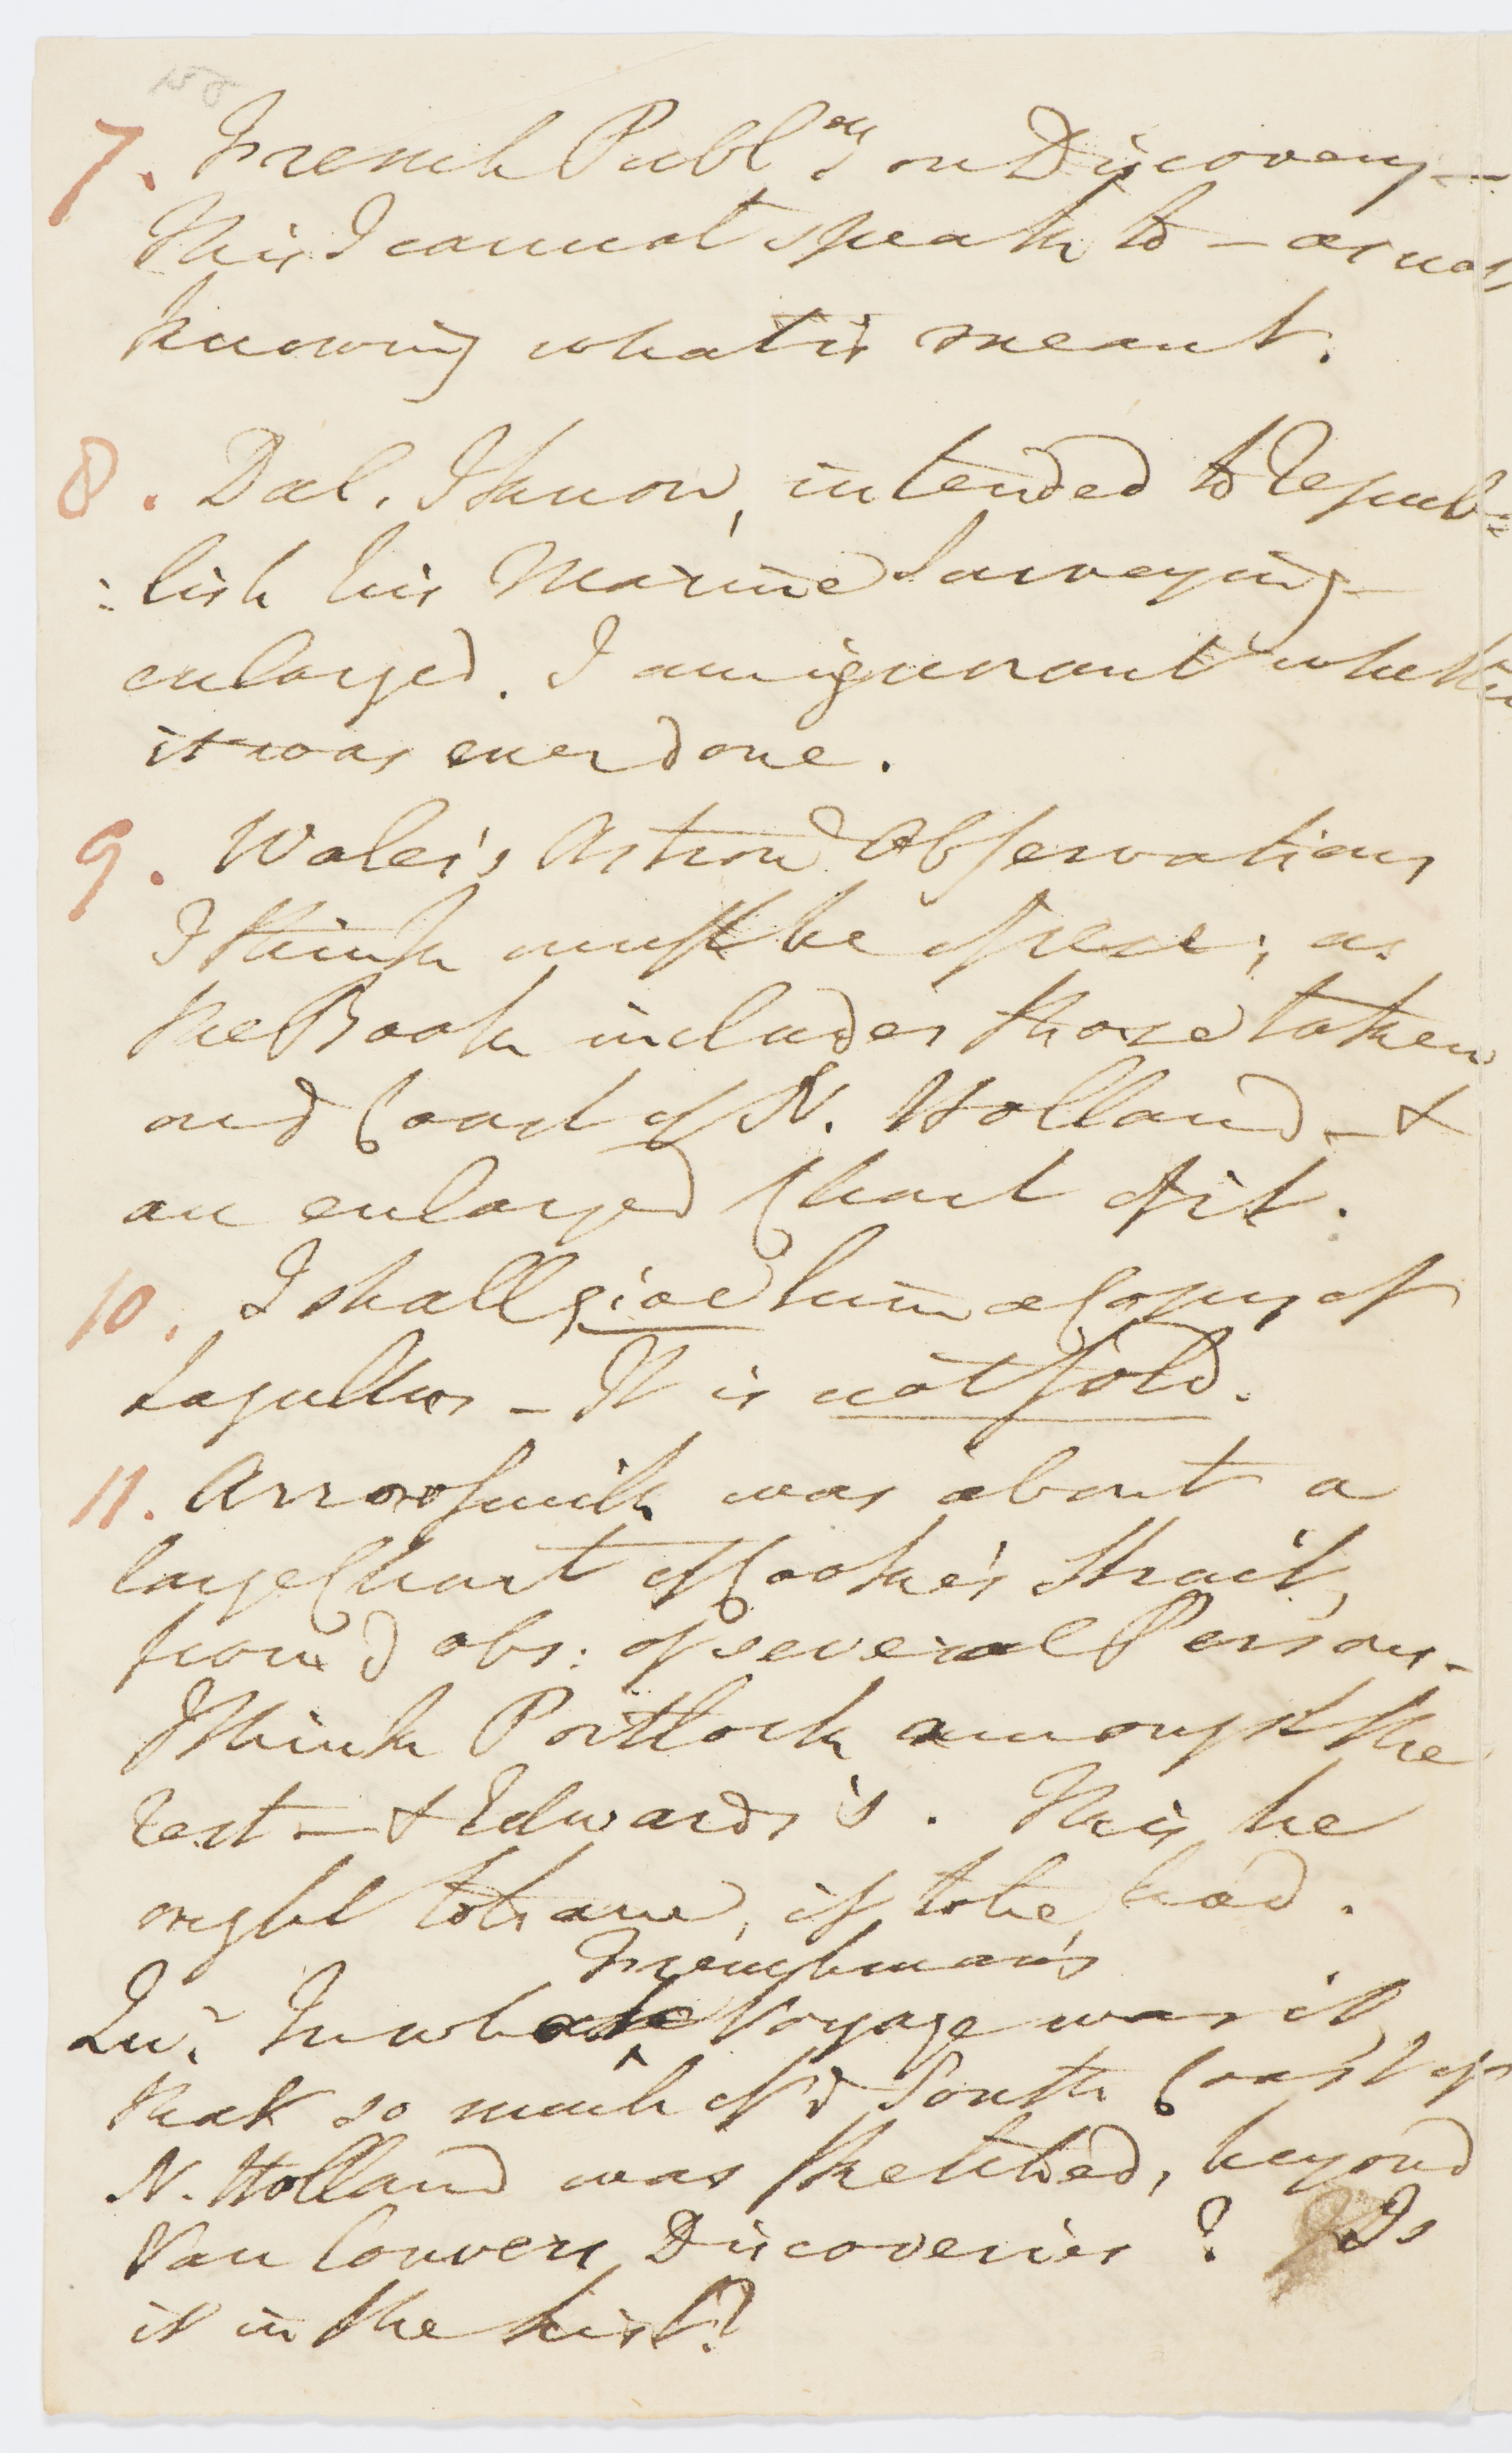 7. French Publ.ons on Discovery —
This I cannot speak to — as not
knowing what is meant.
8. Dal. I know, intended to repub=
=lish his Marine Surveying
enlarged. I am ignorant whether
it was ever done.
9. Wales's Astron.l Observations
I think must be of use; as
the Book includes those taken
on ∂ Coast of N. Holland — &
an enlarged Chart of it.
10. I shall give him a Copy of
Lagullas — It is not sold.
11. Arrowsmith was about a
large Chart of Cooke's Strait,
from ∂ obs: of several Persons —
I think Portlock amongst the
rest — & Edwards's. This he
ought to have, if to be had.
Frenchman's
Qu.r In what Voyage was it,
that so much of ∂ South Coast of
N. Holland was sketched, beyond
Van Couvers Discoveries? Is
it in the List?